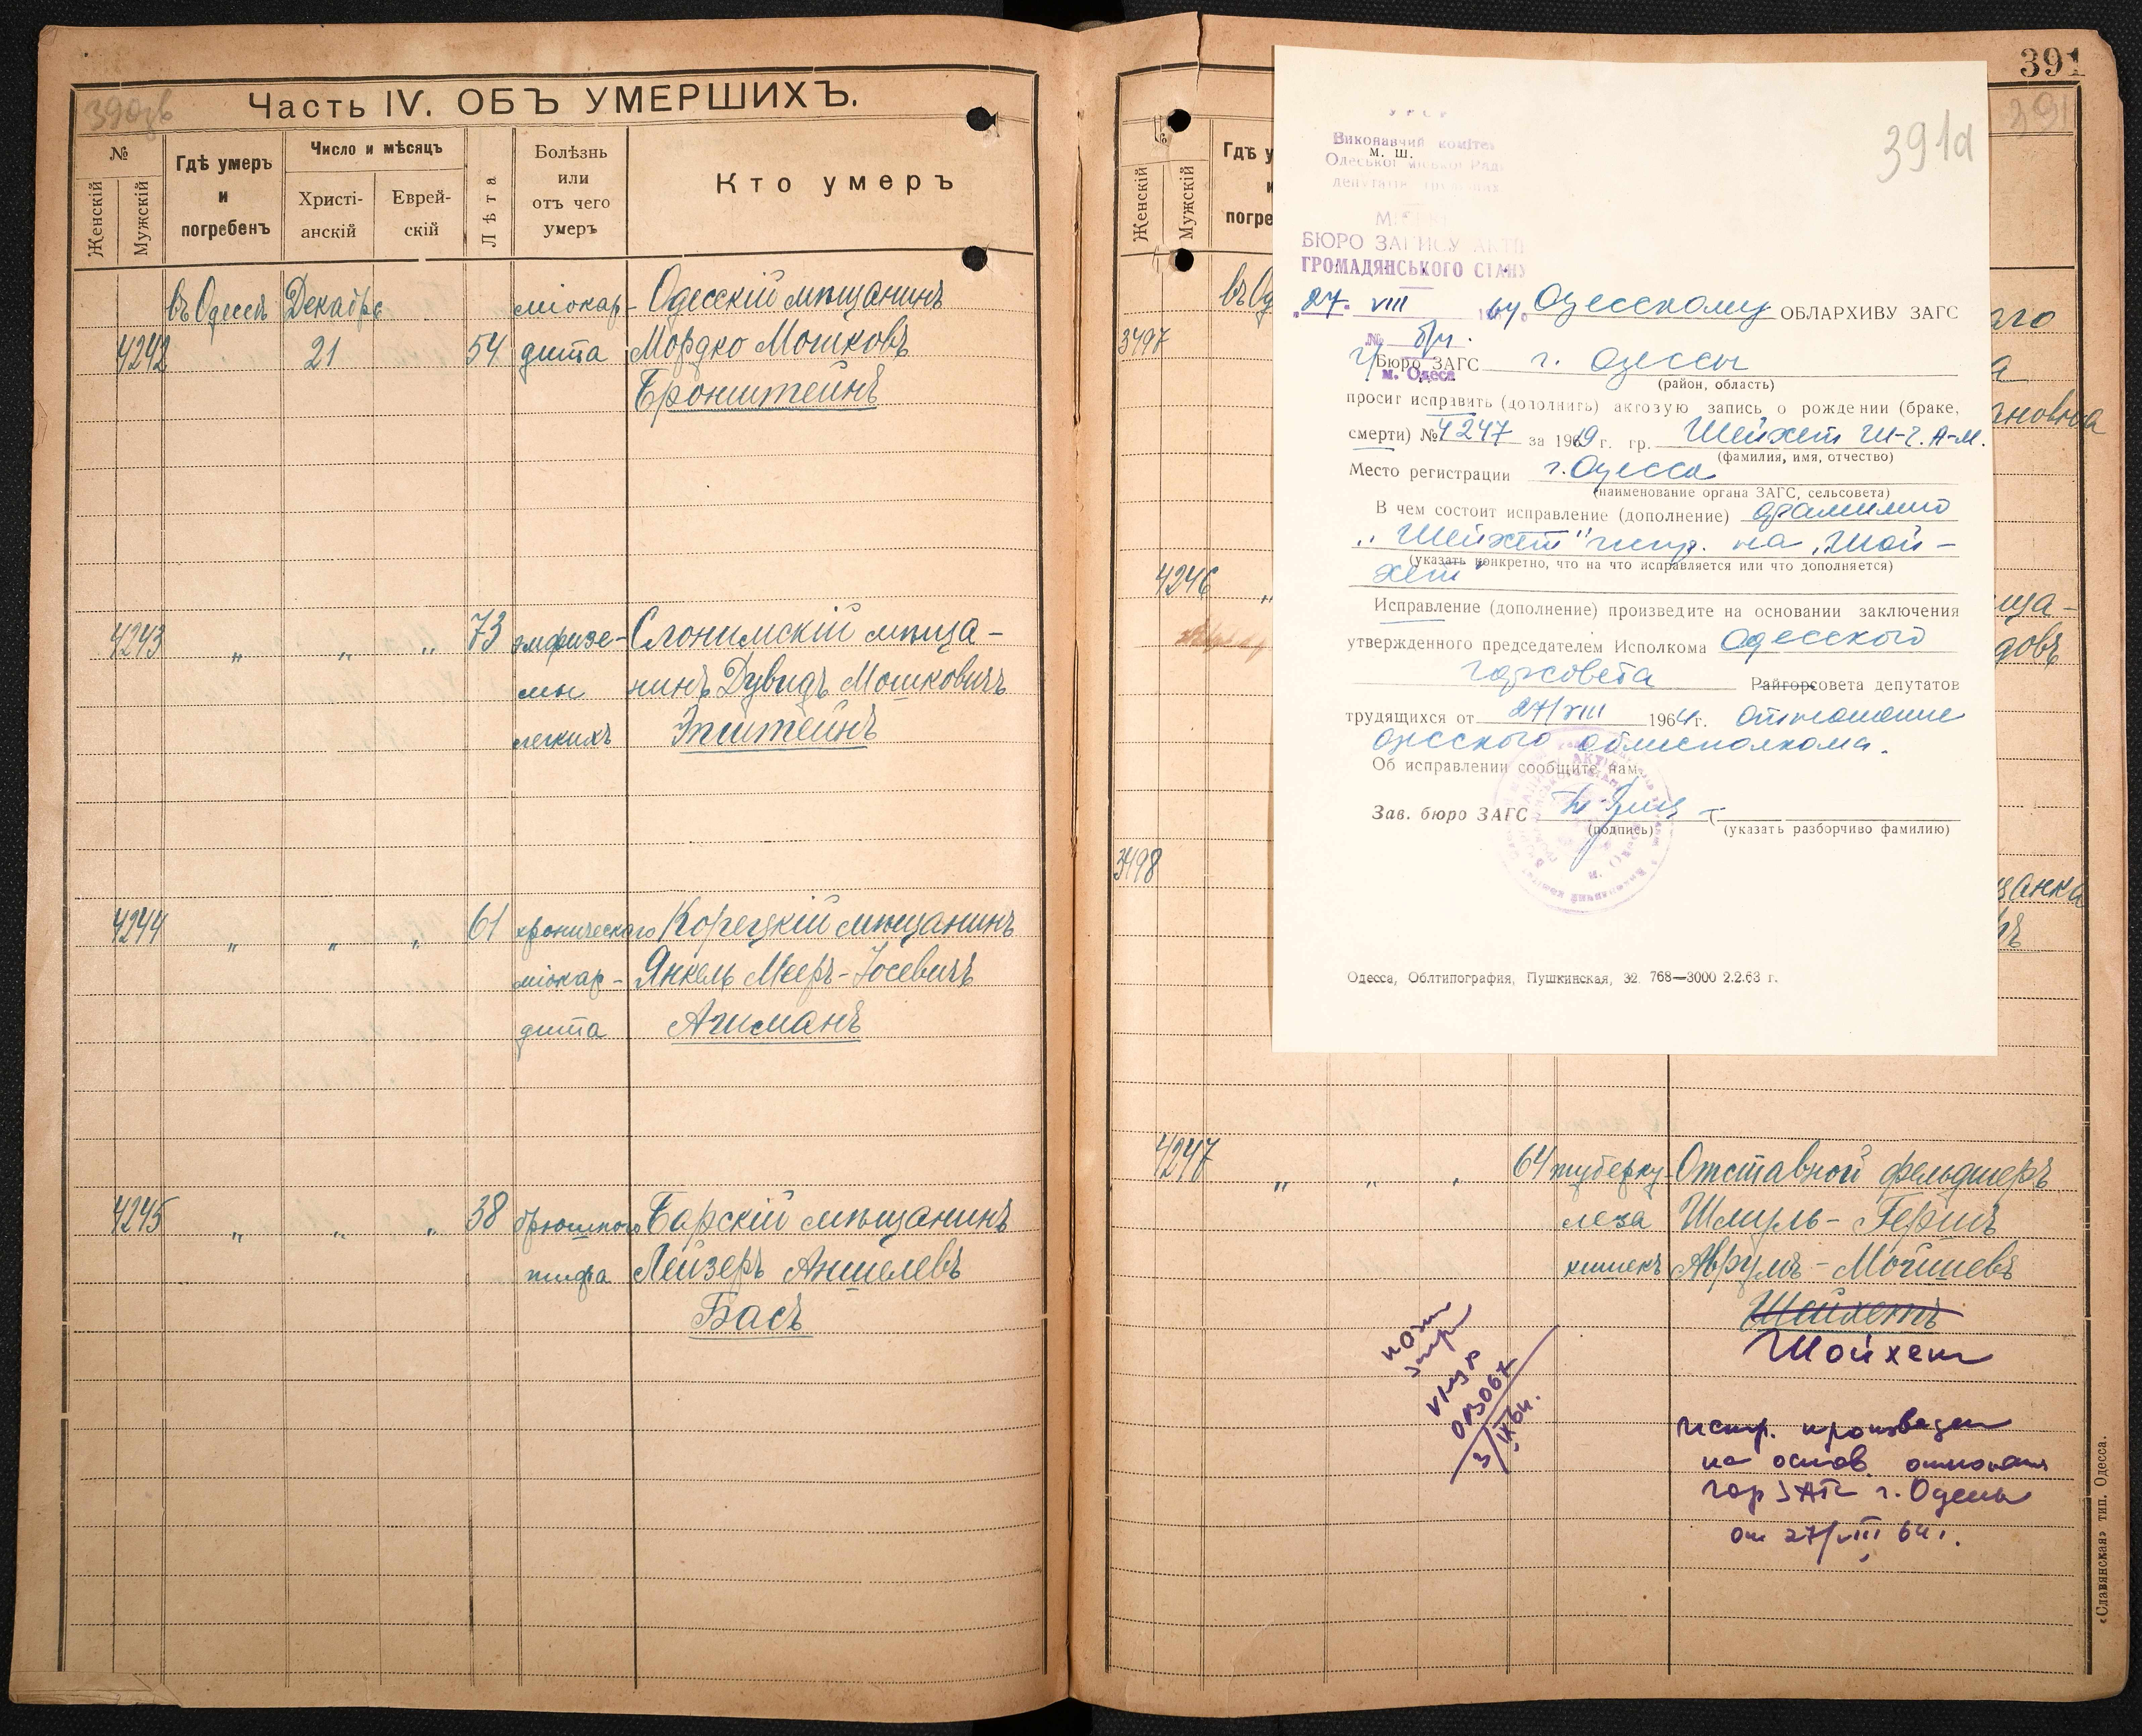 390зв
Часть IV. ОБЪ УМЕРШИХЪ.
№
Женскій
Мужскій
Гдѣ умеръ
и
погребенъ
Число и мѣсяцъ
Христі-
анскій
Еврей-
скій
Лѣта
Болѣзнь
или
отъ чего
умеръ
Кто умеръ
въ Одессѣ Декабрь міокар- Одесскій мѣщанинъ
4242 21 54 дита Мордко Мошковъ
Бронштейнъ
4243 „ „ „ 73 эмфизе- Слонимскій мѣща-
мы нинъ Дувидъ Мошковичъ
легкихъ Эпштейнъ
4244 „ „ „ 61 хроническаго Корецкій мѣщанинъ
міокар- Янкель Мееръ-Іосевичъ
дита Ачманъ
4245 „ „ „ 38 брюшного Барскій мѣщанинъ
тифа Лейзеръ Аншелевъ
Басъ
391
391
Женскій
Мужскій
Гдѣ у
погре
въ Од
3497
аго
а
ановна
4246 „
ща-
довъ
3498
щанка
ръ
391а
УРСР
Виконавчий комітет
м. ш.
Одеської міської Ради
депутатів трудящих
БЮРО ЗАПИСУ АКТІВ
ГРОМАДЯНСЬКОГО СТАНУ
„27“ VIII 1964 Одесскому ОБЛАРХИВУ ЗАГС
№ б/н.
м. Одеса
Г/Бюро ЗАГС г. Одессы
(район, область)
просит исправить (дополнить) актовую запись о рождении (браке,
смерти) № 4247 за 1919 г. гр. Шейхет Ш-Г. А-М.
(фамилия, имя, отчество)
Место регистрации г. Одесса
(наименование органа ЗАГС, сельсовета)
В чем состоит исправление (дополнение) фамилию
„Шейхет" испр. на „Шой-
(указать конкретно, что на что исправляется или что дополняется)
хет"
Исправление (дополнение) произведите на основании заключения
утвержденного председателем Исполкома Одесского
горсовета Райгорсовета депутатов
трудящихся от 27/VIII 1964 г. отношение
одесского облисполкома.
Об исправлении сообщите нам.
Зав. бюро ЗАГС
(подпись) (указать разборчиво фамилию)
Одесса, Облтипография, Пушкинская, 32. 768—3000 2.2.63 г.
4247 „ „ „ 64 туберку- Отставной фельдшеръ
леза Шмуль-Гершъ
кишекъ Аврумъ-Мойшевъ
Шейхетъ
Шойхет
3/IX 64.
Испр. произведен
на основ. отношения
гор ЗАГС г. Одессы
от 27/VIII 64 г.
«Славянская» тип. Одесса.